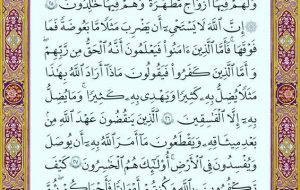 وَلَهُمْ فِيهَا أَزْوَاجٌ مُّطَهَّرَةٌ وَهُمْ فِيهَا خَالِدُونَ ۝
إِنَّ ٱللَّهَ لَا يَسْتَحْىِۦٓ أَن يَضْرِبَ مَثَلًا مَّا بَعُوضَةً فَمَا
فَوْقَهَا فَأَمَّا ٱلَّذِينَ ءَامَنُوا۟ فَيَعْلَمُونَ أَنَّهُ ٱلْحَقُّ مِن رَّبِّهِمْ
وَأَمَّا ٱلَّذِينَ كَفَرُوا۟ فَيَقُولُونَ مَاذَآ أَرَادَ ٱللَّهُ بِهَٰذَا
مَثَلًا يُضِلُّ بِهِۦ كَثِيرًا وَيَهْدِى بِهِۦ كَثِيرًا وَمَا يُضِلُّ
بِهِۦٓ إِلَّا ٱلْفَٰسِقِينَ ۝ ٱلَّذِينَ يَنقُضُونَ عَهْدَ ٱللَّهِ مِنۢ
بَعْدِ مِيثَٰقِهِۦ وَيَقْطَعُونَ مَآ أَمَرَ ٱللَّهُ بِهِۦٓ أَن يُوصَلَ
وَيُفْسِدُونَ فِى ٱلْأَرْضِ أُو۟لَٰٓئِكَ هُمُ ٱلْخَٰسِرُونَ ۝ كَيْفَ
تَكْفُرُونَ بِٱللَّهِ وَكُنتُمْ أَمْوَٰتًا فَأَحْيَٰكُمْ ثُمَّ